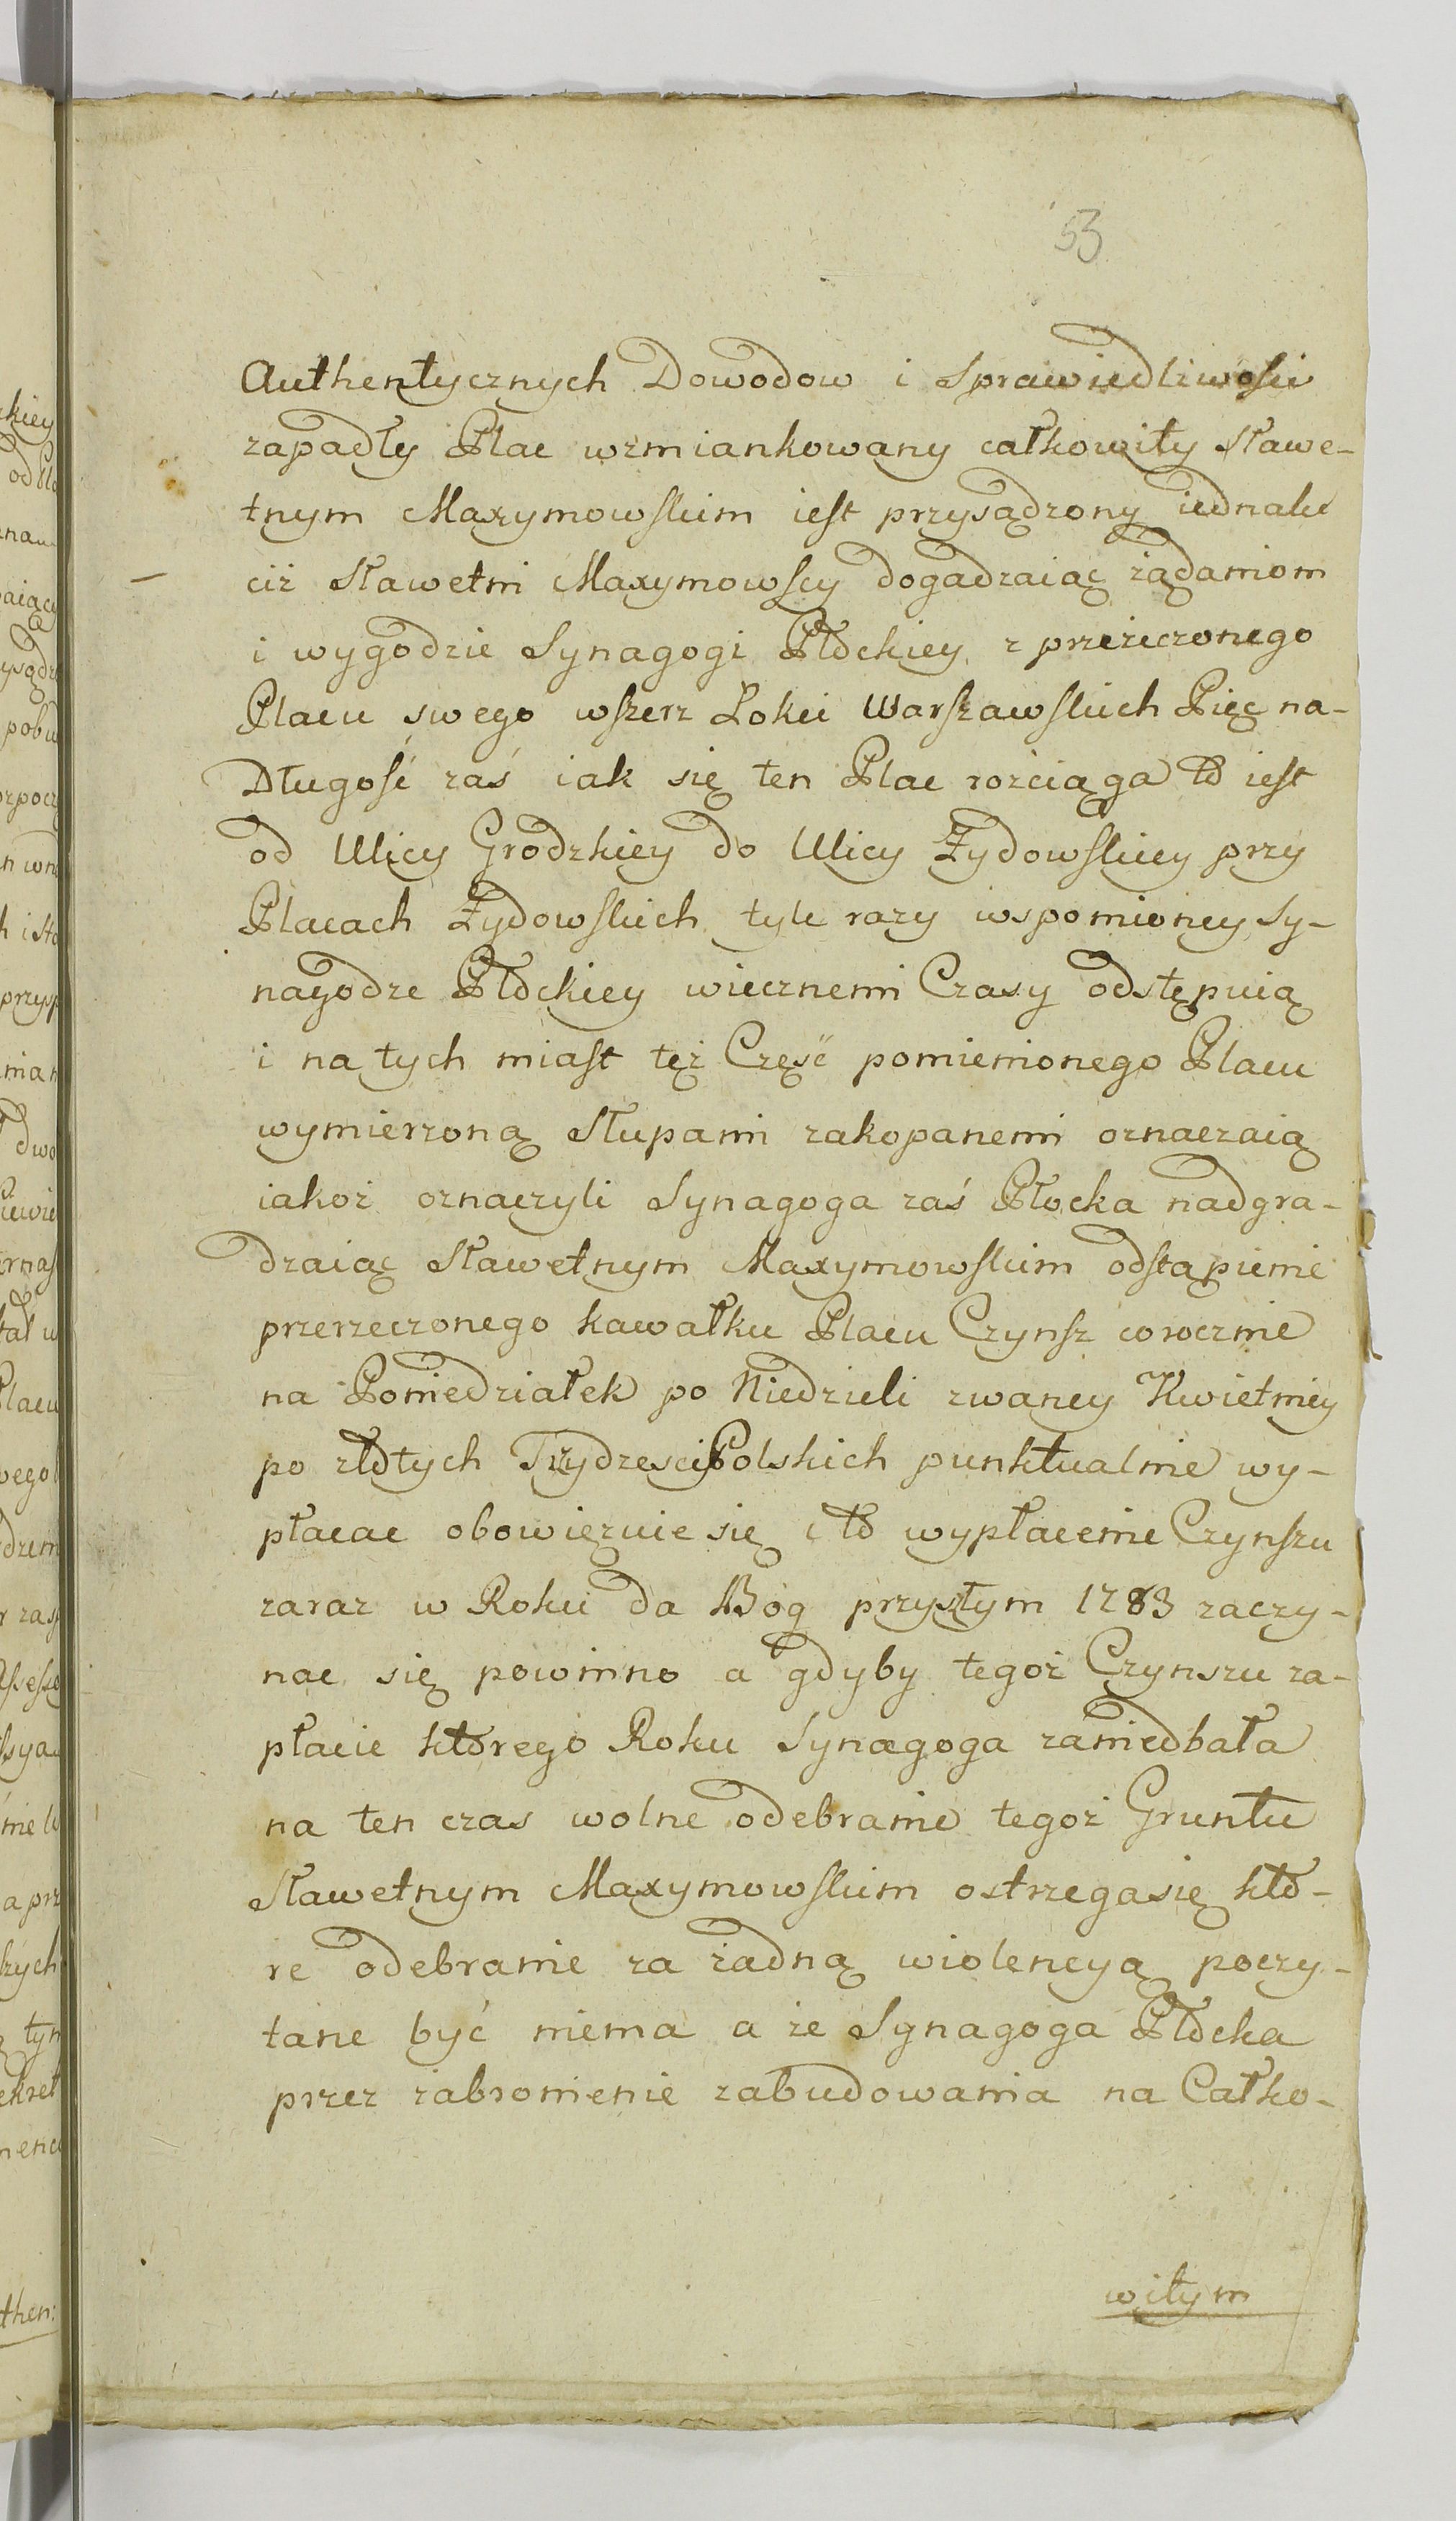 53
Authentycznych Dowodow i Sprawiedliwości
zapadły Plac wzmiankowany całkowity Sławe-
tnym Maxymowskim iest przysądzony iednakże
ciż Sławetni Maxymowscy dogadzaiąc żądaniom
i wygodzie Synagogi Płockiey z przerzeczonego
Placu swego wszerz Łokci Warszawskich Pięć na-
Długość zaś iak się ten Plac rozciąga to iest
od Ulicy Grodzkiey do Ulicy Żydowskiey przy
Placach Żydowskich tyle razy wspomioney Sy-
nagodze Płockiey wiecznemi Czasy odstępuią
i na tych miast tęż Część pomienionego Placu
wymierzoną Słupami zakopanemi oznaczaią
iakoż oznaczyli Synagoga zaś Płocka nadgra-
dzaiąc Sławetnym Maxymowskim odstąpienie
przerzeczonego kawałku Placu Czynsz corocznie
na Poniedziałek po Niedzieli zwaney Kwietniey
po złotych Trzydzesci Polskich punktualnie wy-
płacac obowięzuie się i to wypłacenie Czynszu
zaraz w Roku da Bóg przyszłym 1783 zaczy-
nac się powinno a gdyby tegoż Czynszu za-
płacie którego Roku Synagoga zaniedbała
na ten czas wolne odebranie tegoż Gruntu
Sławetnym Maxymowskim ostrzega się któ-
re odebranie za żadną wiolencyą poczy-
tane być niema a że Synagoga Płocka
przez zabronienie zabudowania na Całko-
witym